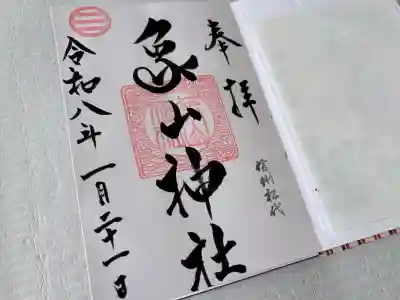 奉拝
信州松代
象山神社
令和八年一月二十一日